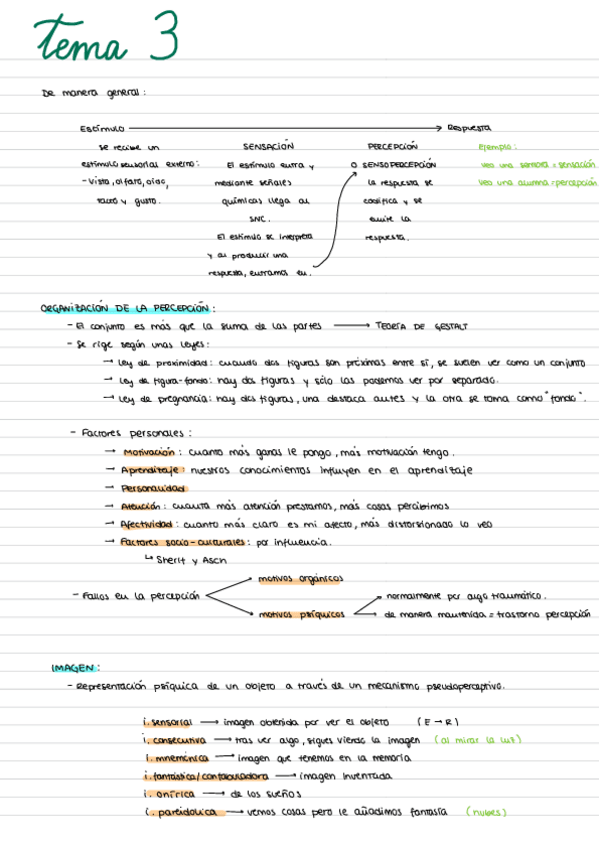 tema 3
De manera general:
Estímulo → Respuesta
se recibe un
estímulo sensorial externo:
- vista, olfato, oído,
tacto y gusto.
SENSACIÓN
El estímulo entra y
mediante señales
químicas llega al
SNC.
El estímulo se interpreta
y al producir una
respuesta, entramos en.
PERCEPCIÓN
O SENSOPERCEPCIÓN
la respuesta se
codifica y se
emite la
respuesta.
Ejemplo:
veo una sombra = sensación.
veo una alumna = percepción.
ORGANIZACIÓN DE LA PERCEPCIÓN:
- El conjunto es más que la suma de las partes → TEORÍA DE GESTALT
- Se rige según unas leyes:
→ Ley de proximidad: cuando dos figuras son próximas entre sí, se suelen ver como un conjunto
→ Ley de figura-fondo: hay dos figuras y sólo las podemos ver por separado.
→ Ley de pregnancia: hay dos figuras, una destaca antes y la otra se toma como "fondo".
- Factores personales:
→ Motivación: cuanto más ganas le pongo, más motivación tengo.
→ Aprendizaje: nuestros conocimientos influyen en el aprendizaje
→ Personalidad
→ Atención: cuanta más atención prestamos, más cosas percibimos
→ Afectividad: cuanto más claro es mi afecto, más distorsionado lo veo
→ Factores socio-culturales: por influencia.
↳ Sherif y Asch
- Fallos en la percepción
motivos orgánicos
motivos psíquicos
normalmente por algo traumático.
de manera mantenida = trastorno percepción
IMAGEN:
- Representación psíquica de un objeto a través de un mecanismo pseudoperceptivo.
i. sensorial → imagen obtenida por ver el objeto (E → R)
i. consecutiva → tras ver algo, sigues viendo la imagen (al mirar la luz)
i. mnemónica → imagen que tenemos en la memoria
i. fantástica/confabuladora → imagen inventada
i. onírica → de los sueños
i. pareidolica → vemos cosas pero le añadimos fantasía (nubes)